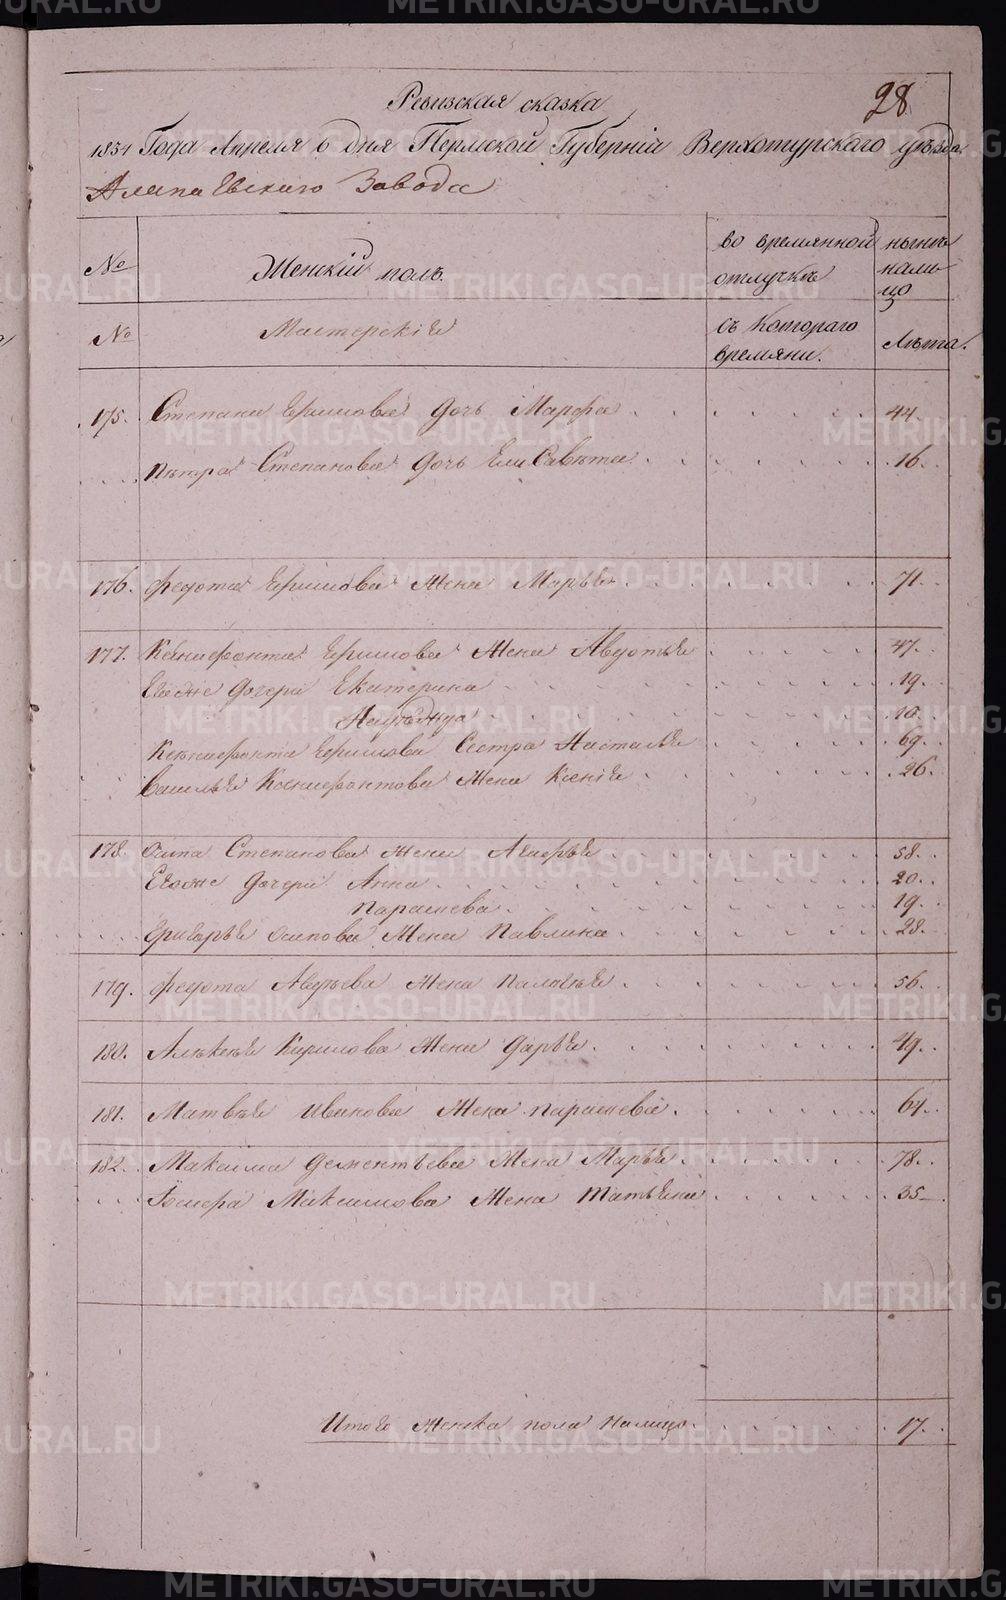 28
Ревизская сказка
1834 Года Апреля 6 дня Пермской Губерніи Верхотурскаго уезда
Алапаевскаго Завода
№ Женскій полъ. во времянной отлучкѣ ныне налицо
№ Мастерскіе съ Котораго времяни. Лѣта.
175. Степана Ермилова дочь Марфа 44.
Петра Степанова дочь Елисавета 16.
176. Федота Ермилова Жена Марья 71.
177. Ксенифонта Ермилова Жена Авдотья 47.
Ево же дочери Екатерина 19.
Надежда 10.
Ксенифонта Ермилова Сестра Настасья 69.
Василья Ксенифонтова Жена Ксенія 26.
178. Осипа Степанова жена 58.
Ево же дочери Анна 20.
Парасковья 19.
Григорья Осипова Жена Павлина 28.
179. Федота Авдеева Жена Палагея 56.
180. Алексея Кирилова Жена Дарья 49.
181. Матвея Иванова Жена Парасковья 64.
182. Максима Дементьева Жена Марья 78.
Максимова Жена Татьяна 35
Итого Женска пола налицо 17.
METRIKI.GASO-URAL.RU